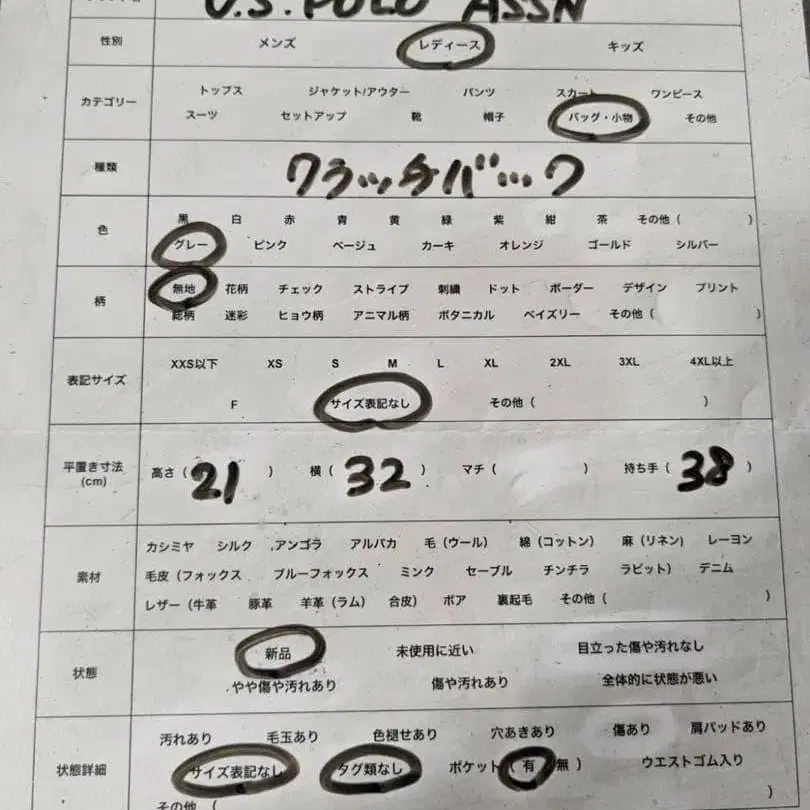 U.S. POLO ASSN
性別 メンズ レディース キッズ
カテゴリー トップス ジャケット/アウター パンツ スカート ワンピース
スーツ セットアップ 靴 帽子 バッグ・小物 その他
種類 クラッチバック
色 黒 白 赤 青 黄 緑 紫 紺 茶 その他( )
グレー ピンク ベージュ カーキ オレンジ ゴールド シルバー
柄 無地 花柄 チェック ストライプ 刺繍 ドット ボーダー デザイン プリント
総柄 迷彩 ヒョウ柄 アニマル柄 ボタニカル ペイズリー その他( )
表記サイズ XXS以下 XS S M L XL 2XL 3XL 4XL以上
F サイズ表記なし その他( )
平置き寸法 (cm) 高さ(21) 横(32) マチ( ) 持ち手(38)
素材 カシミヤ シルク アンゴラ アルパカ 毛(ウール) 綿(コットン) 麻(リネン) レーヨン
毛皮(フォックス ブルーフォックス ミンク セーブル チンチラ ラビット) デニム
レザー(牛革 豚革 羊革(ラム) 合皮) ボア 裏起毛 その他( )
状態 新品 未使用に近い 目立った傷や汚れなし
やや傷や汚れあり 傷や汚れあり 全体的に状態が悪い
状態詳細 汚れあり 毛玉あり 色褪せあり 穴あきあり 傷あり 肩パッドあり
サイズ表記なし タグ類なし ポケット(有 無) ウエストゴム入り
その他( )